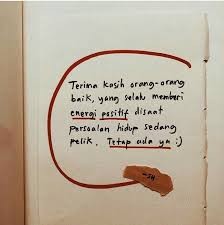 Terima kasih orang-orang
baik, yang selalu memberi
energi positif disaat
persoalan hidup sedang
pelik. Tetap ada ya :)
-SH